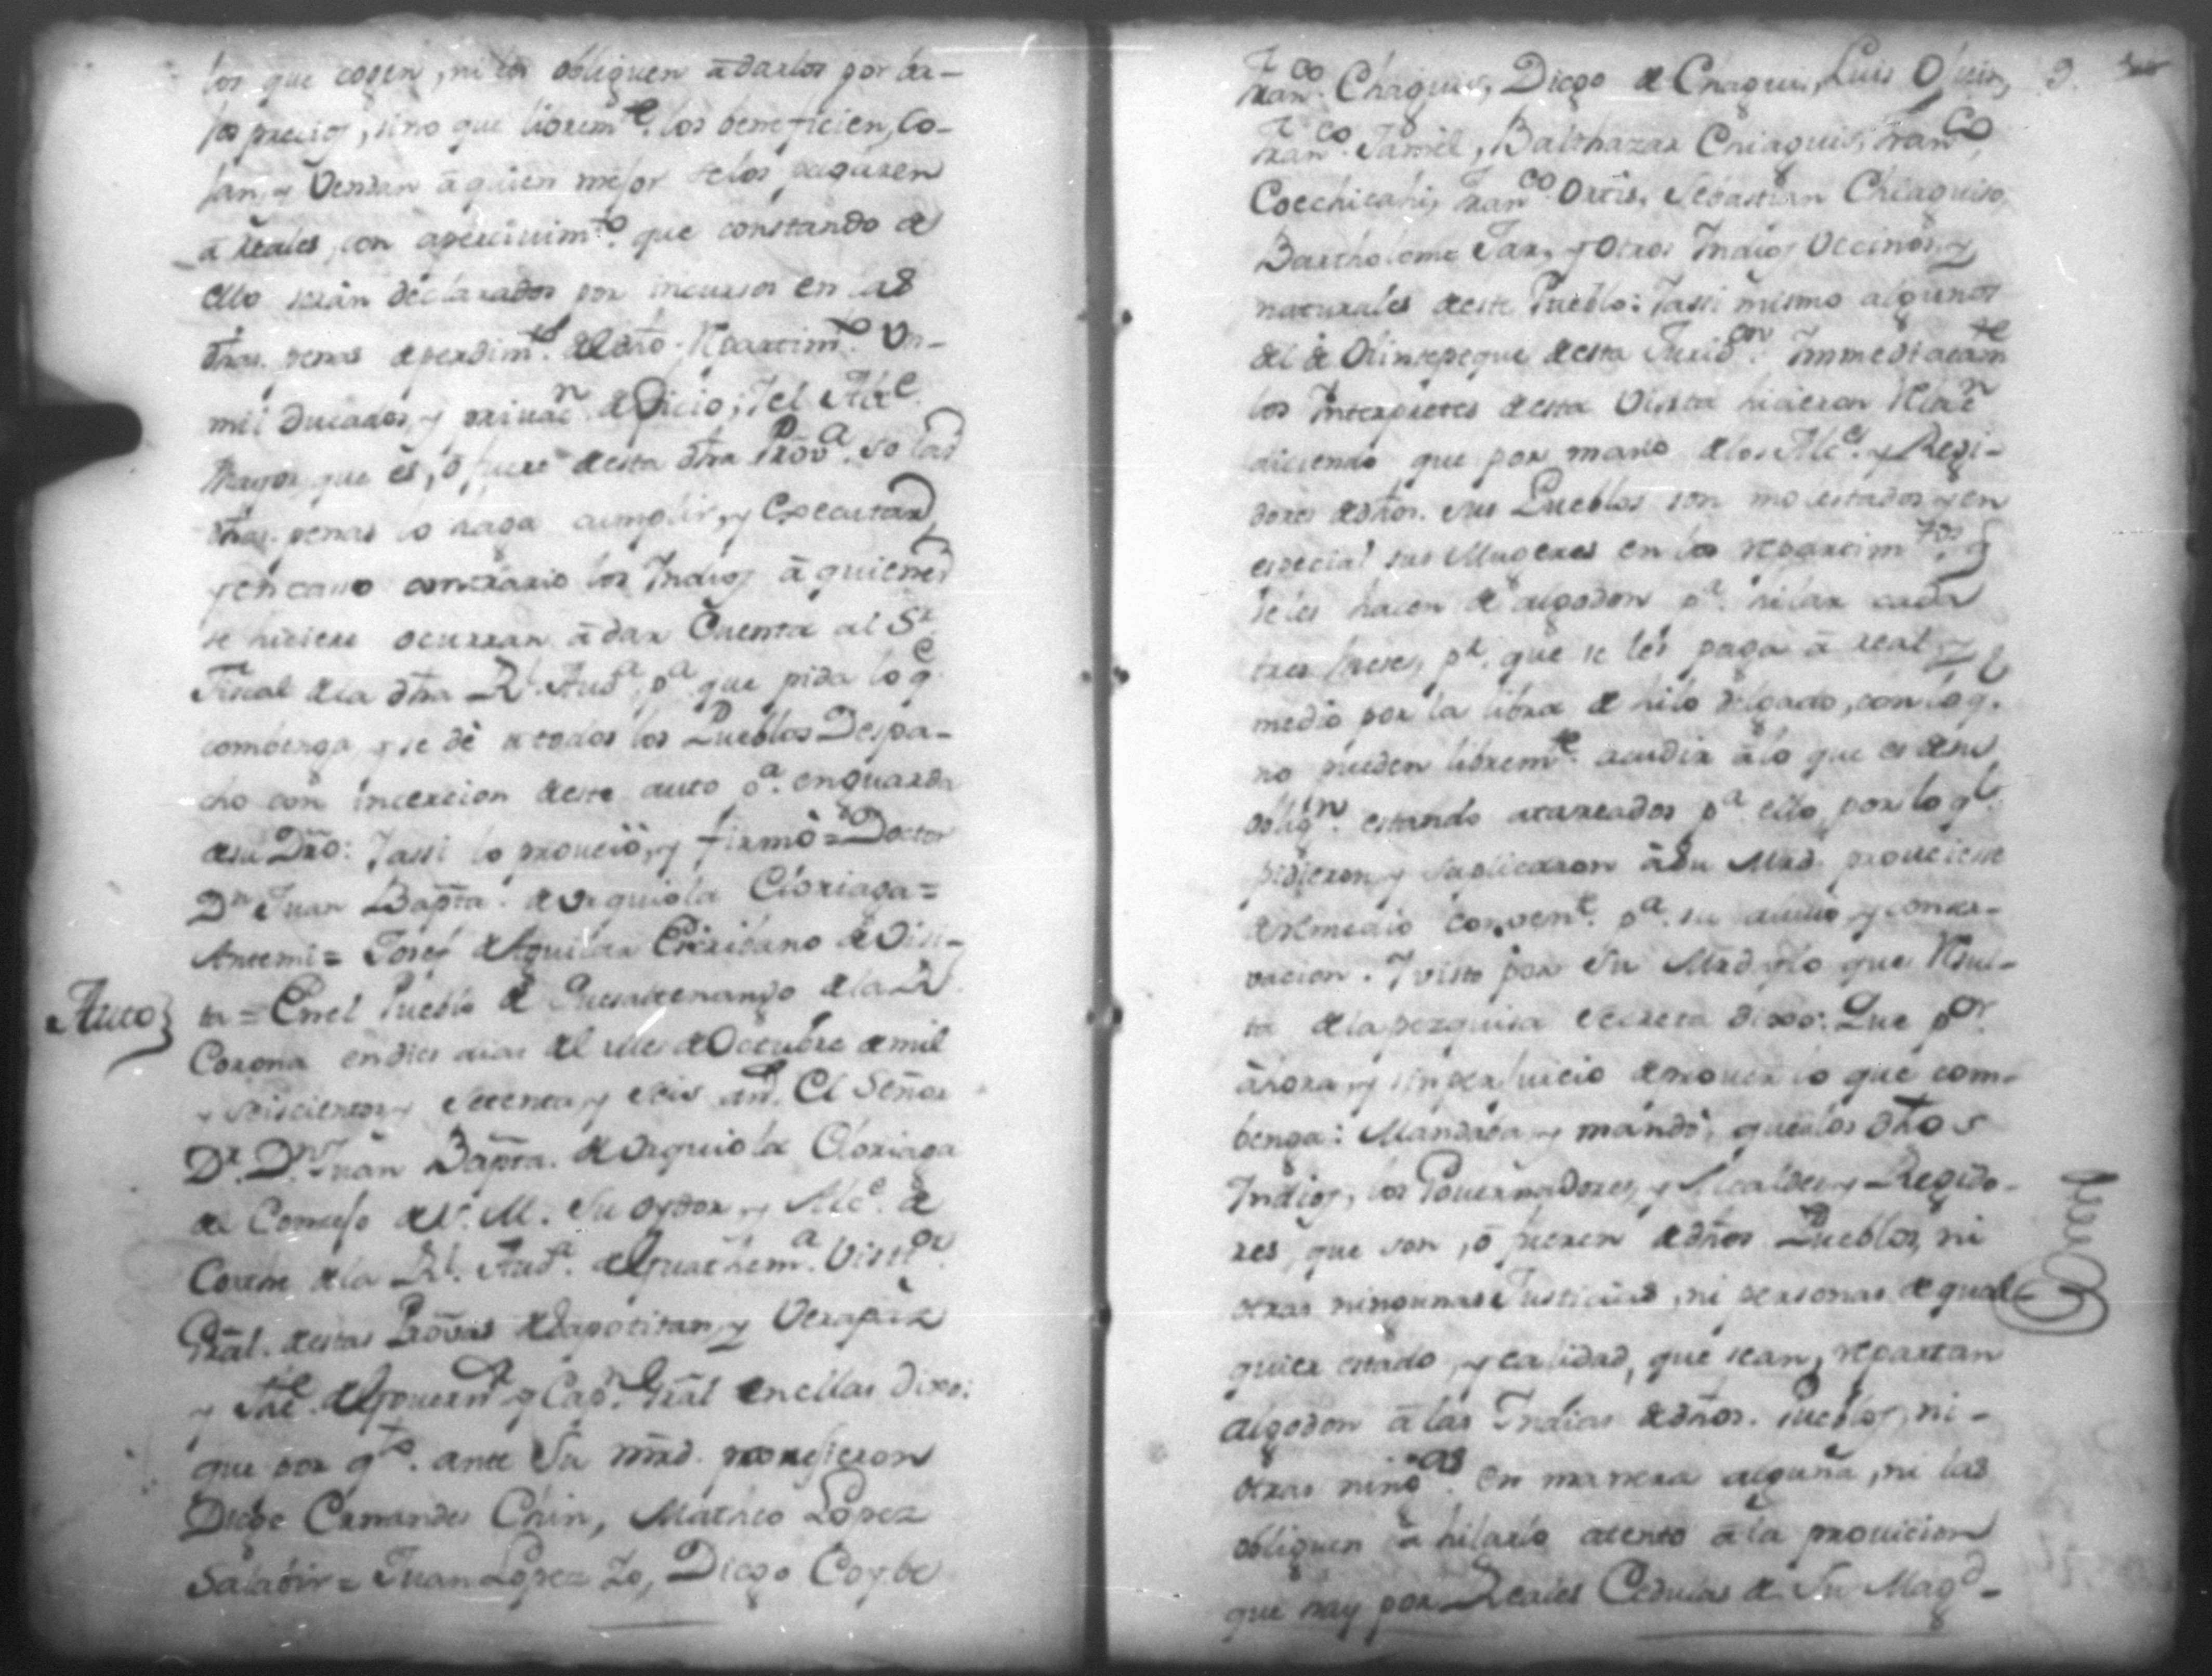 los que cogen, ni los obliguen â darlos por ba-
jos precios, sino que librem.te los beneficien, co-
jan, y Vendan â quien mejor se los pagaren
â reales, con apercivim.to que constando de
ello serán declarados por incursos en las
dhas. penas de perdim.to del dho. Repartim.to Un-
mil Ducados, y privac.n de Oficio; Y el Alc.e
Mayor que es, ô fuere desta dha Prov.a so las
dhas. penas lo haga cumplir, y Executar
y en caso contrario los Indios â quienes
se hiciere ocurran â dar Cuenta al S.r
Fiscal dela dha R.l Aud.a p.a que pida lo q.e
combenga, y se dé a todos los Pueblos Despa-
cho con incercion deste auto p.a en guarda
de su Dro: Y assi lo proueió, y firmó = Doctor
D.n Juan Bapta. de Urquiola Eloriaga =
Ante mi = Josef de Aguilar Escribano de Visi-
Auto
ta = En el Pueblo de Quesaltenango de la R.l
Corona en dies dias del Mes de Octubre de mil
y seiscientos y Setenta y Seis añs. El Señor
D.r D.n Juan Bapta. de Urquiola Eloriaga
del Consejo de S. M. Su Oydor, y Alc.e de
Corthe de la R.l Aud.a de Guathem.a Visit.or
Gral. destas Provas de Sapotitan, y Verapaz
y The. de Gouern.r y Cap.n Gral en ellas dixo:
que por q.to ante Su mrd. parecieron
Diego Ernandes Chin, Matheo Lopez
Salabir = Juan Lopez Zo, Diego Coybe
Fran.co Chaquis, Diego de Chaqui, Luis 3.
Fran.co Jamel, Balthazar Chiaquis, Fran.co
Coechicahi, Fran.co Ortis, Sebastian Chiaquiso,
Bartholome Tax, y Otros Indios Vecinos, y
naturales deste Pueblo: Y assi mismo algunos
del de Olintepeque desta Jurisd.on Immediatam.te
los Interpretes desta Visita hicieron Relac.n
diciendo que por mano de los Alc.es y Regi-
dores de dhos. sus Pueblos son molestados, y en
especial sus Mugeres en los repartim.tos q
se les hacen de algodon p.a hilar cada
tres meses, p.r que se les paga â real, y
medio por la libra de hilo delgado, con lo q.e
no pueden librem.te acudir â lo que es de su
oblig.n estando atareados p.a ello, por lo q.l
pidieron, y suplicaron â Su Mrd. proueiese
de remedio conven.te p.a su aliuio, y conser-
vacion. Y visto por Su Mrd. y lo que Resul-
ta de la pezquisa secreta dixo: Que p.or
âhora, y sin perjuicio de proueer lo que com-
benga: Mandaba, y mandó, que â los dhos
Indios, los Gouernadores, y Alcaldes, y Regido-
res, que son, ô fueren de dhos Pueblos, ni
otras ningunas Justicias, ni personas de qual-
quier estado, y calidad, que sean, repartan
algodon â las Indias de dhos. Pueblos, ni-
otras ning.as en manera alguna, ni las
obliguen â hilarlo atento â la prouicion
que hay por Reales Cedulas de Su Mag.d-